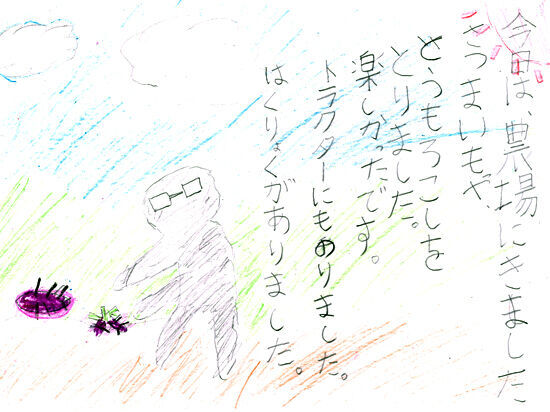 今日は、農場にきました
さつまいもや
とうもろこしを
とりました。
楽しかったです。
トラクターにものりました。
はくりょくがありました。